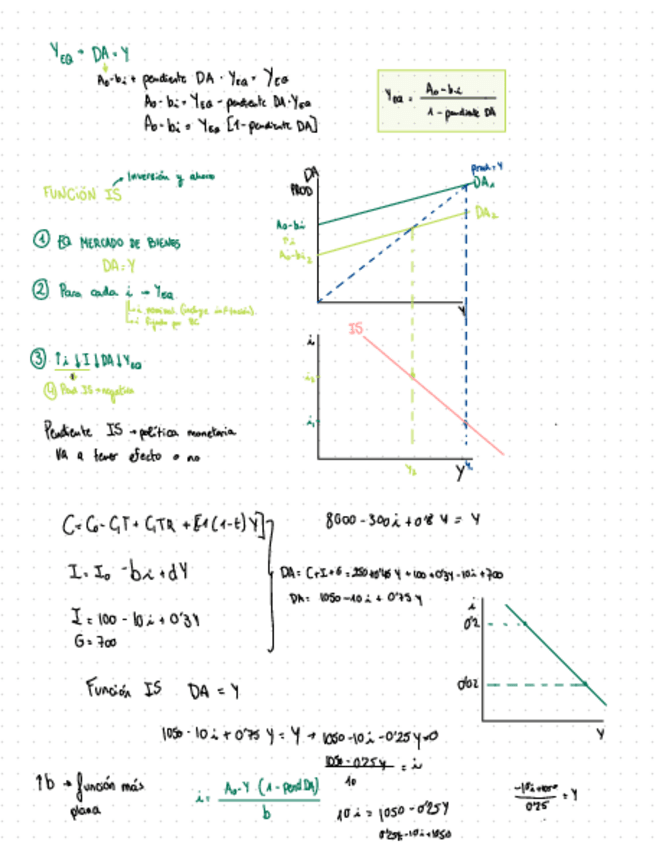 Y_EQ → DA = Y
A₀-bi + pendiente DA · Y_EQ = Y_EQ
A₀-bi = Y_EQ - pendiente DA·Y_EQ
A₀-bi = Y_EQ [1-pendiente DA]
Y_EQ = A₀-bi / 1-pendiente DA
FUNCIÓN IS → Inversión y ahorro
① EQ MERCADO DE BIENES
DA=Y
② Para cada i → Y_EQ
i nominal (incluye inflación)
i fijado por BC
③ ↑i ↓I ↓DA ↓Y_EQ
④ Pend IS → negativa
Pendiente IS → política monetaria
va a tener efecto o no
DA
PROD
Prod=Y
DA₁
DA₂
A₀-bi
↑i
A₀-bi₂
Y
IS
i
i₂
i₁
Y₂
Y
Y₁
C = C₀ - C₁T + C₁TR + [C1(1-t)Y]
I = I₀ - bi + dY
I = 100 - 10i + 0'3Y
G = 700
8000 - 300i + 0'8 Y = Y
DA = C+I+G = 250+0'45 Y + 100 + 0'3Y - 10i + 700
DA = 1050 - 10i + 0'75 Y
i
0'2
0'02
Y
Función IS DA = Y
1050 - 10i + 0'75 Y = Y → 1050 - 10i - 0'25Y = 0
1050 - 0'25Y / 10 = i
↑b → función más
plana
i = A₀-Y (1-pend DA) / b
10i = 1050 - 0'25Y
0'25Y = -10i + 1050
-10i+1050 / 0'25 = Y